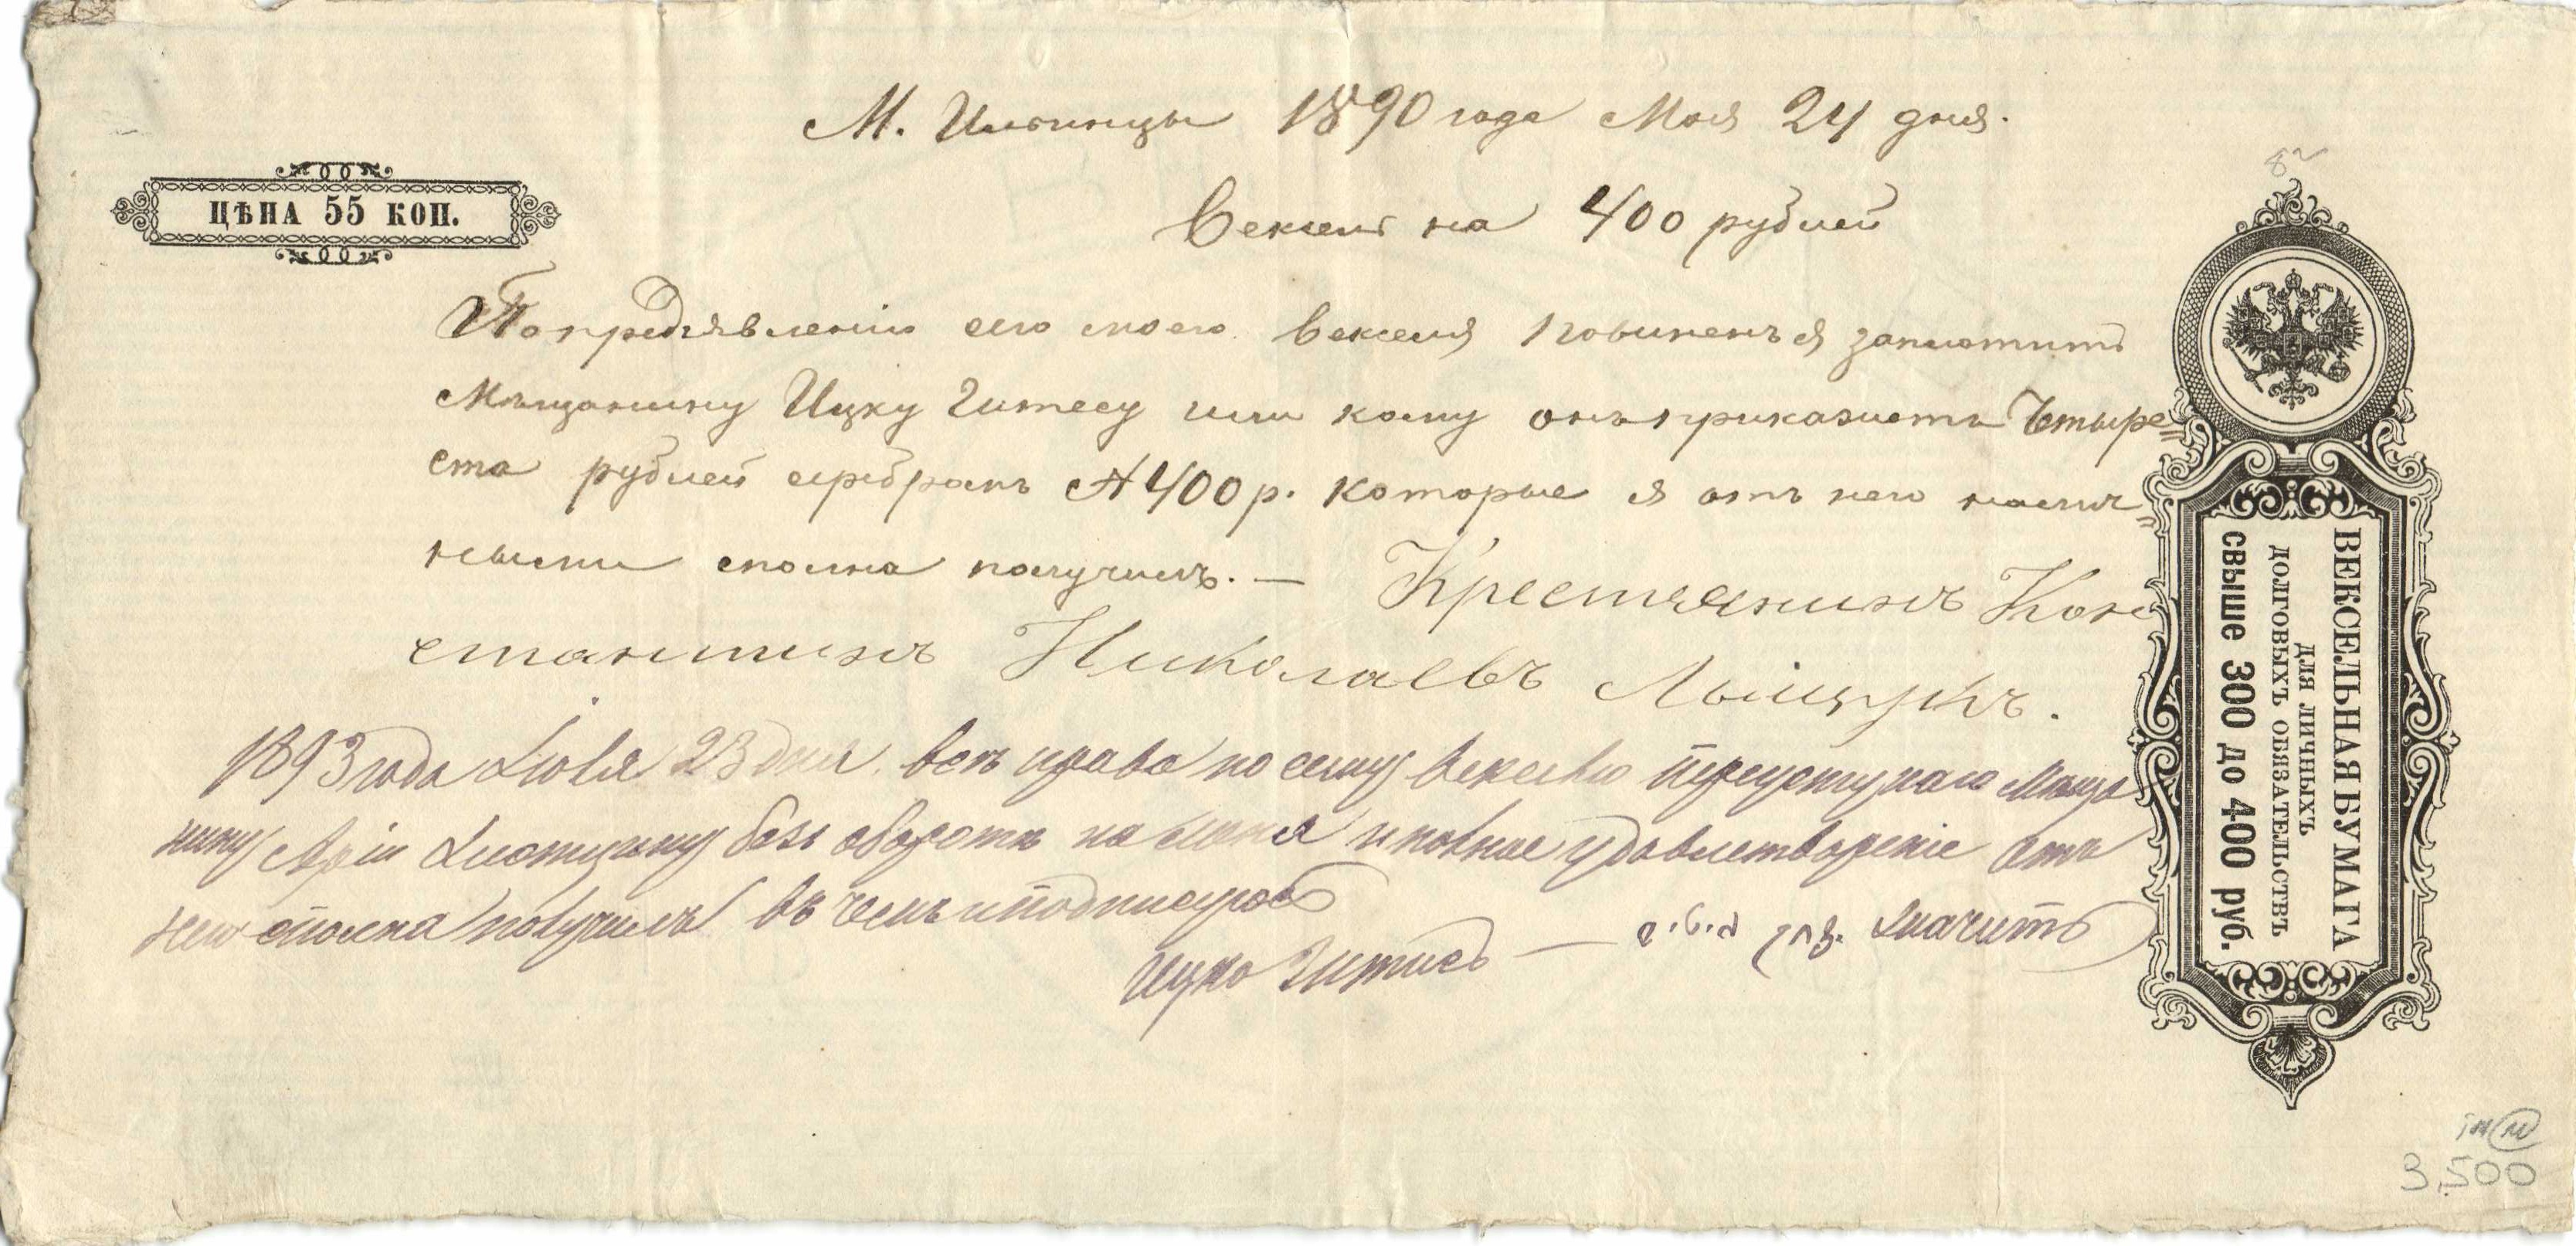 М. Ильинцы 1890 года Мая 24 дня.
ЦѢНА 55 КОП.
Вексель на 400 рублей
По предъявленію сего моего векселя повиненъ я заплатить
Мѣщанину Ицку Гитесу или кому онъ прикажетъ Четыре=
ста рублей серебромъ 400 р. которые я отъ него налич=
ными сполна получилъ. — Крестьянинъ Кон
стантинъ Николаевъ
1893 года Іюля 23 дня. всѣ права по сему векселю переуступаю Мѣща
нину безъ оборота на меня и полное удовлетвореніе отъ
него сполна получилъ въ чемъ и подписуюсь
Ицко Гитисъ — значитъ
ВЕКСЕЛЬНАЯ БУМАГА
ДЛЯ ЛИЧНЫХЪ
ДОЛГОВЫХЪ ОБЯЗАТЕЛЬСТВЪ
СВЫШЕ 300 ДО 400 РУБ.
3.500